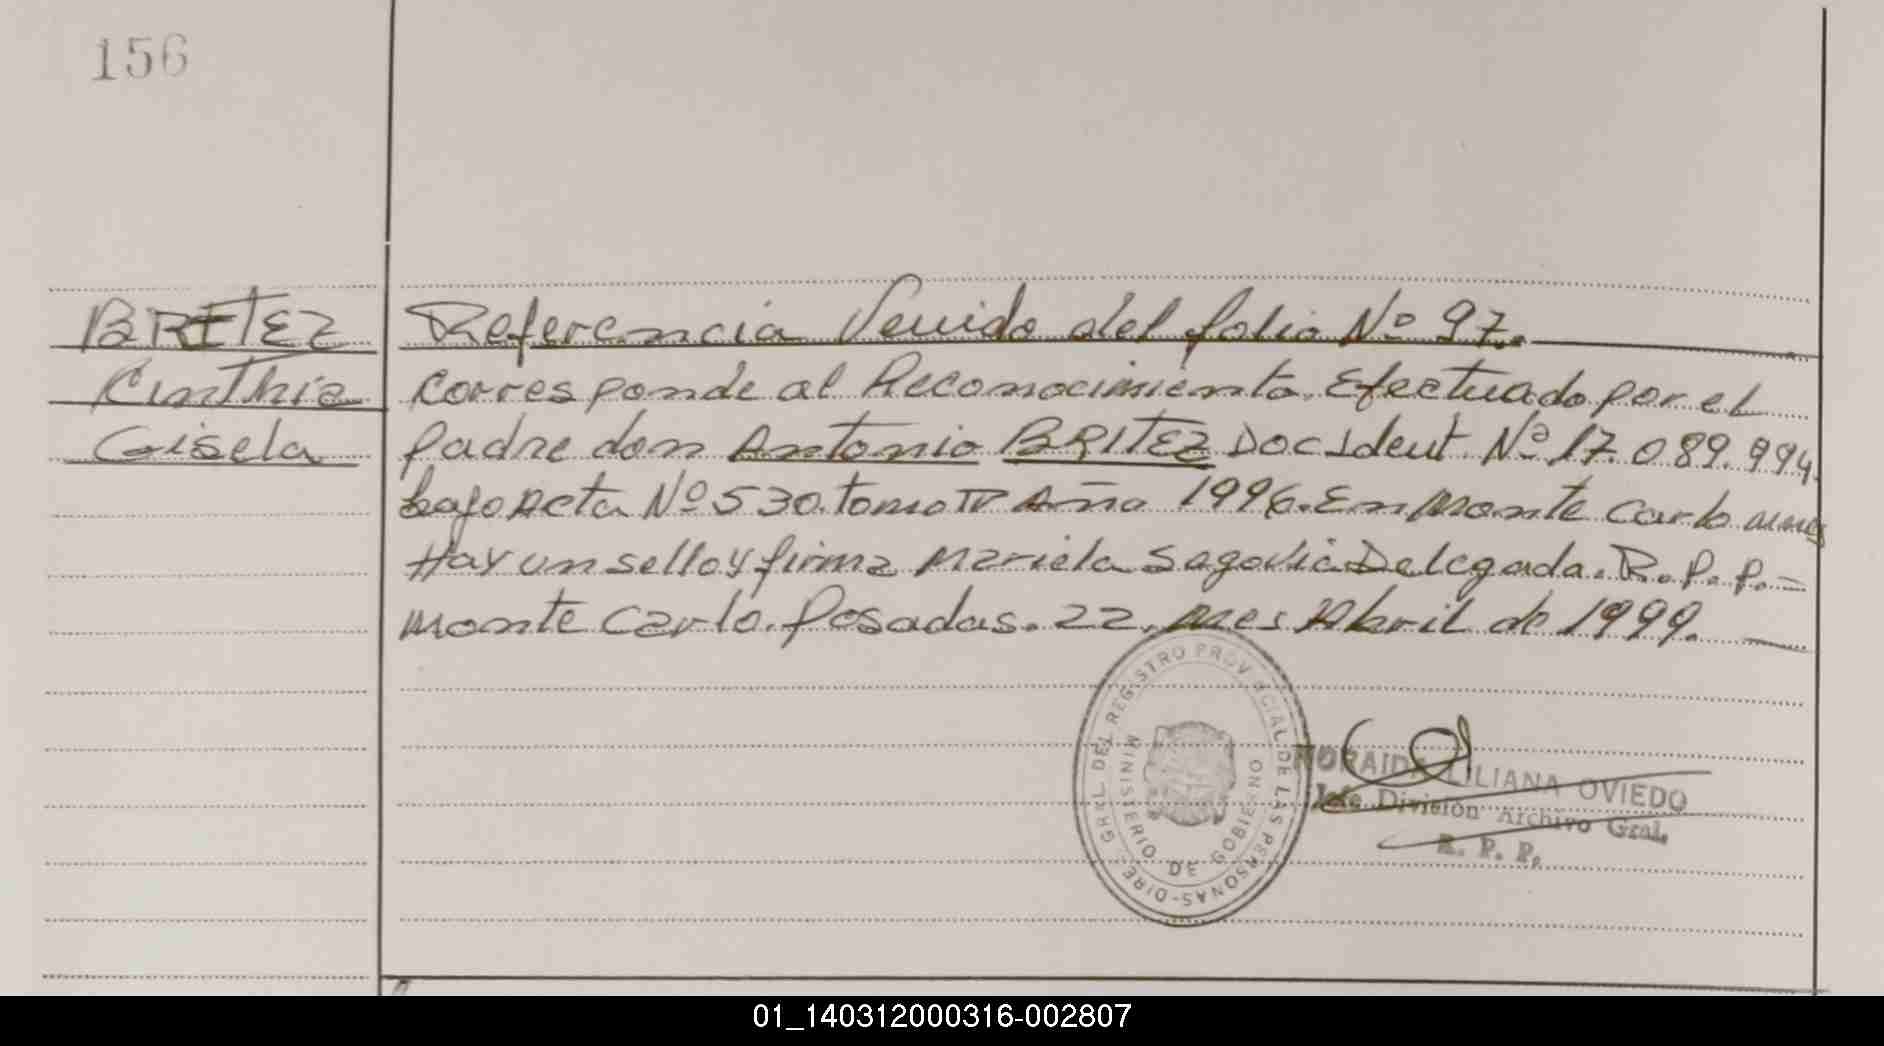 156
BRITEZ
Cinthia
Gisela
Referencia Venido del folio Nº 97.
Corresponde al Reconocimiento. Efectuado por el
padre don Antonio BRITEZ Doc Ident. Nº 17.089.994
bajo Acta Nº 530. tomo IV Año 1996. En Monte Carlo
Hay un sello y firma Mariela Segovia Delegada. R. P. P.
Monte Carlo. Posadas. 22. mes Abril de 1999.
DIRE. GRAL. DEL REGISTRO PROVINCIAL DE LAS PERSONAS
MINISTERIO DE GOBIERNO
LILIANA OVIEDO
Jefe División Archivo Gral.
R. P. P.
01_140312000316-002807